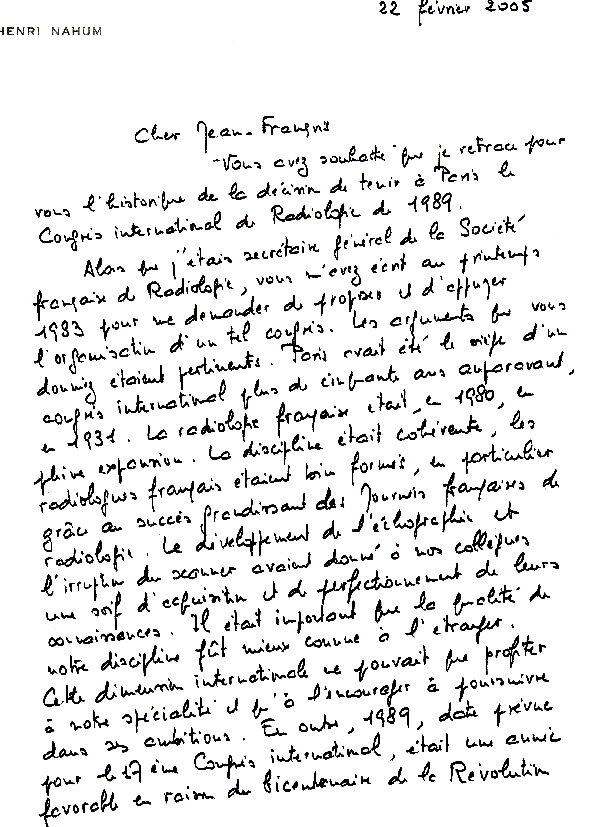 22 février 2005
HENRI NAHUM
Cher Jean-François
Vous avez souhaité que je retrace pour
vous l'historique de la décision de tenir à Paris le
Congrès international de Radiologie de 1989.
Alors que j'étais secrétaire général de la Société
française de Radiologie, vous m'avez écrit au printemps
1983 pour me demander de proposer et d'appuyer
l'organisation d'un tel congrès. Les arguments que vous
donniez étaient pertinents. Paris avait été le siège d'un
congrès international plus de cinquante ans auparavant,
en 1931. La radiologie française était, en 1980, en
pleine expansion. La discipline était cohérente, les
radiologues français étaient bien formés, en particulier
grâce au succès grandissant des Journées françaises de
radiologie. Le développement de l'échographie et
l'irruption du scanner avaient donné à nos collègues
une soif d'acquisition et de perfectionnement de leurs
connaissances. Il était important que la qualité de
notre discipline fût mieux connue à l'étranger.
Cette dimension internationale ne pouvait que profiter
à notre spécialité et qu'à l'encourager à poursuivre
dans ses ambitions. En outre, 1989, date prévue
pour le 17ème Congrès international, était une année
favorable en raison du bicentenaire de la Révolution